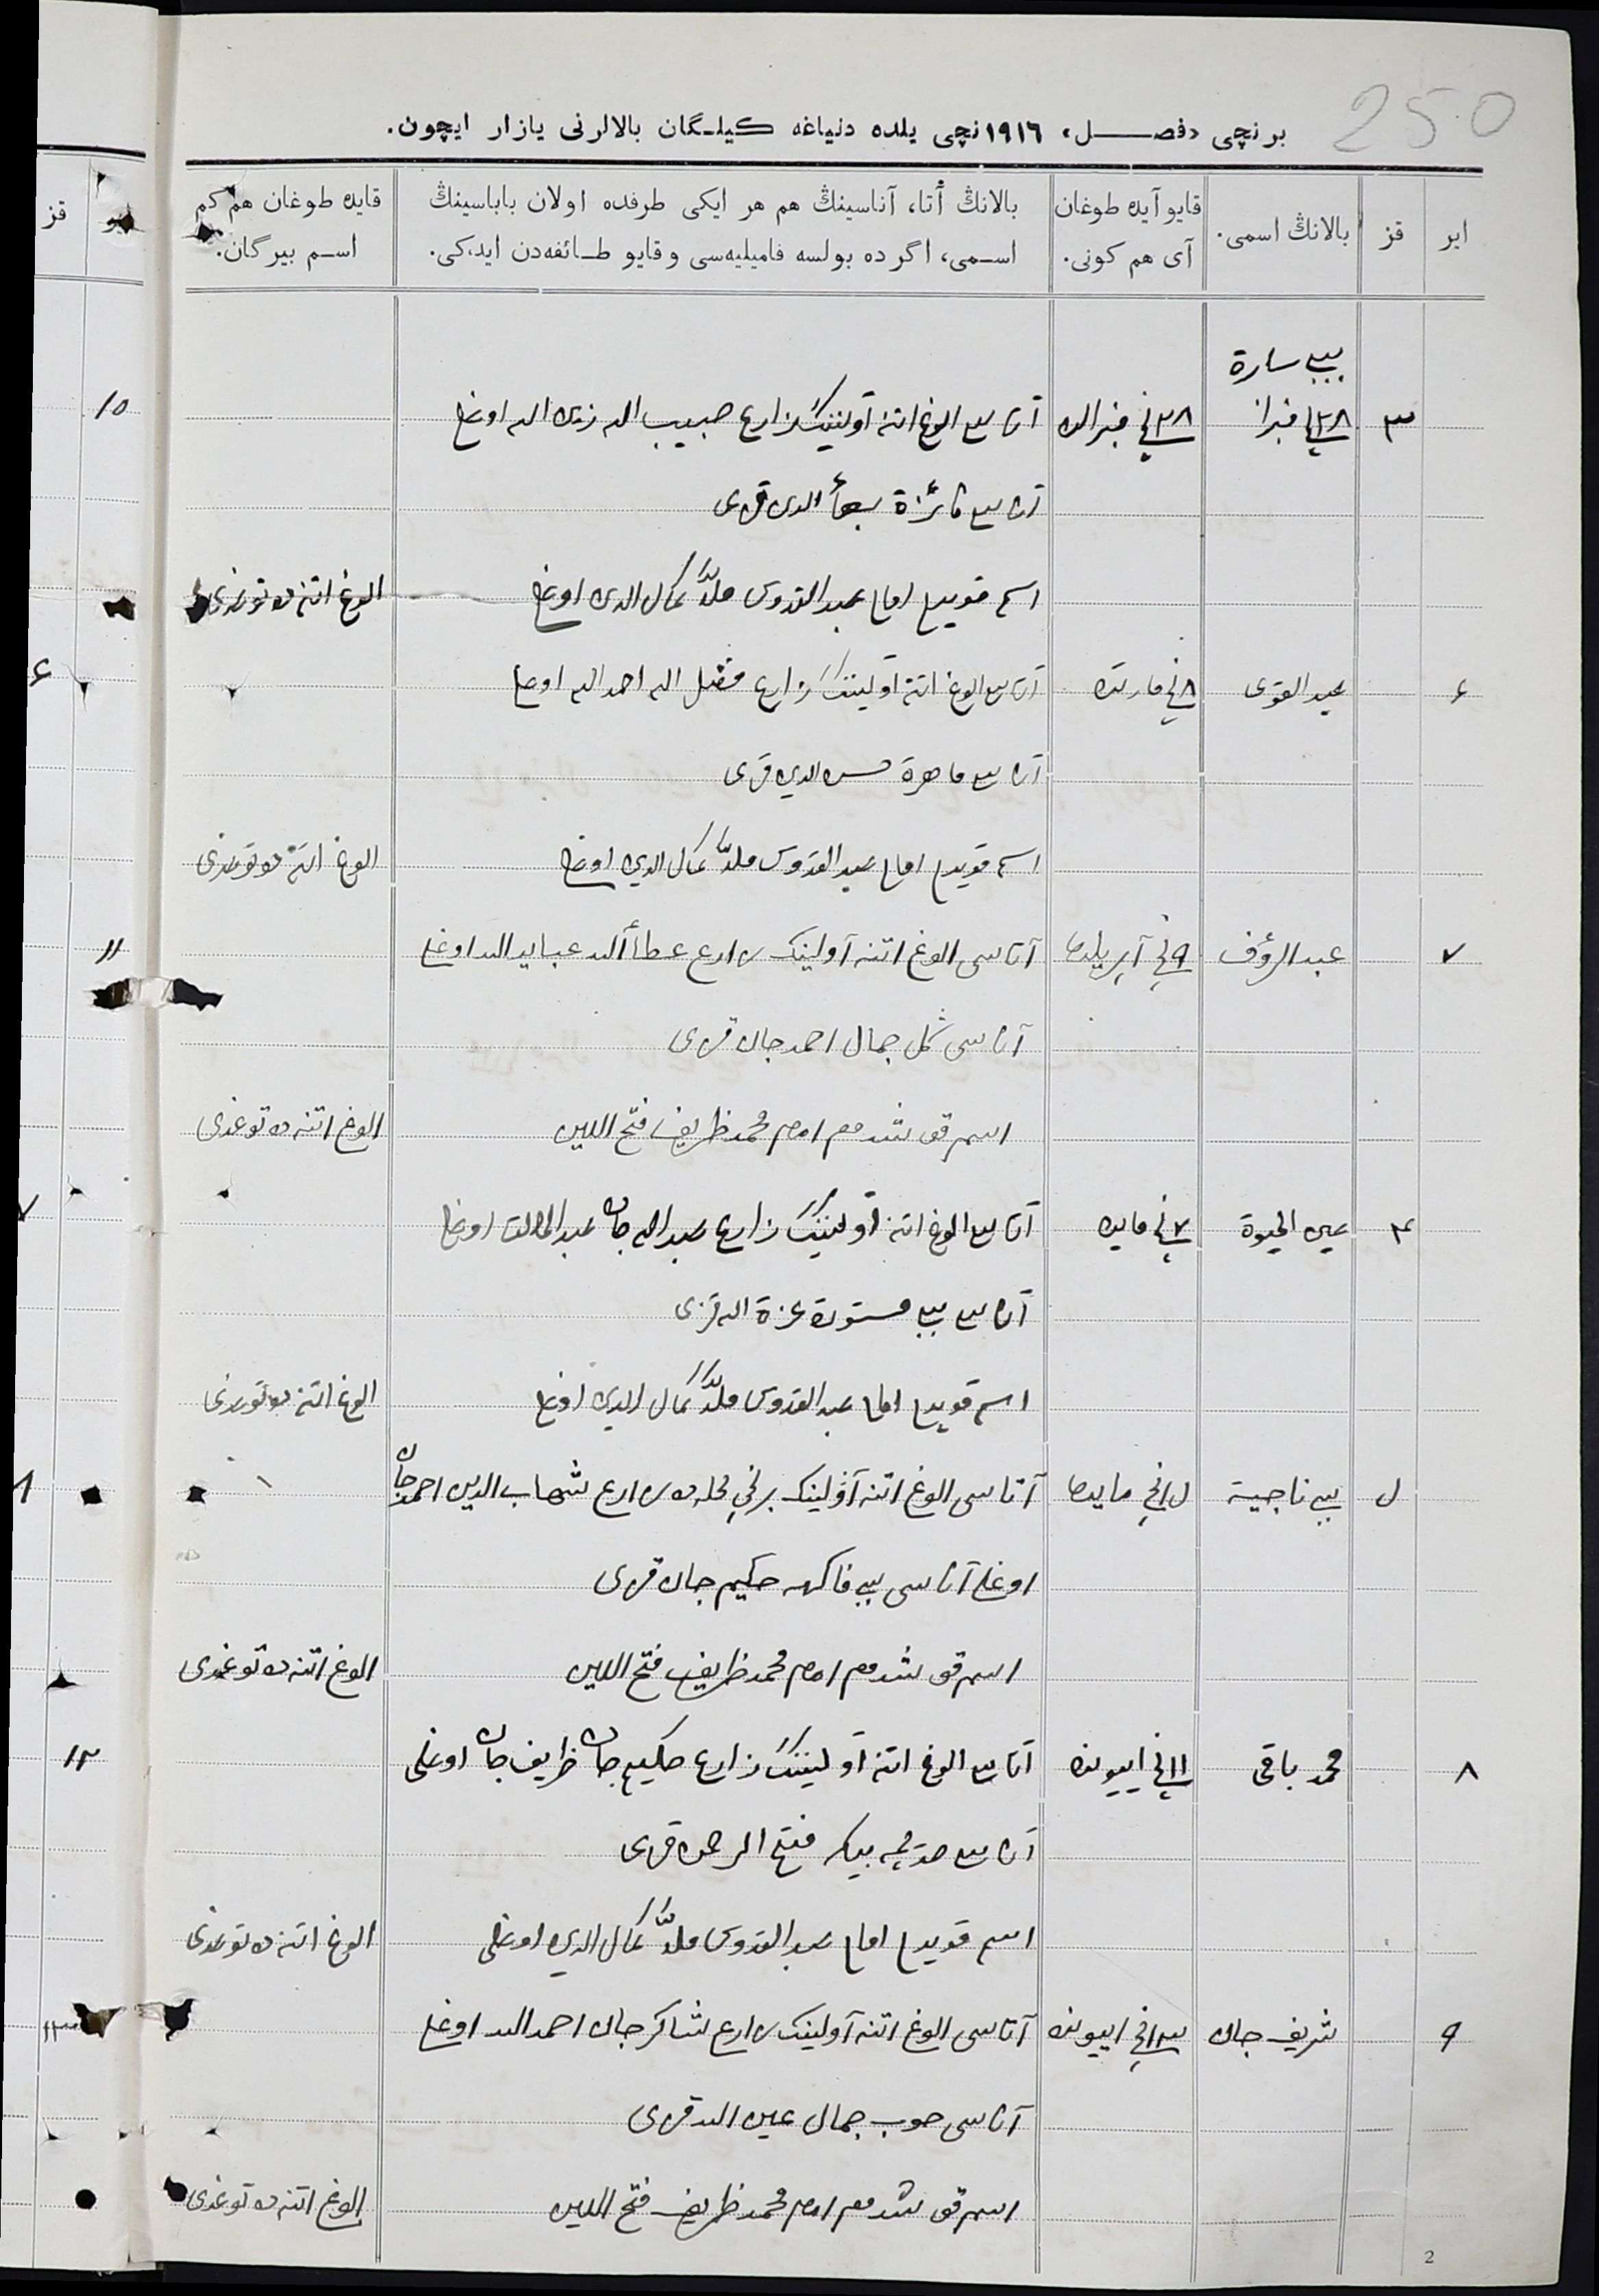 250
برنچی «فصل» ١٩١٦نچی يلده دنياغه كيلگان بالالرنی يازار ايچون.
اير
قز
بالانڭ اسمی.
قايو آيده طوغان
آی هم كونی.
بالانڭ أتا، آناسينڭ هم هر ايكی طرفده اولان باباسينڭ
اسمی، اگر ده بولسه فاميليه‌سی و قايو طائفه‌دن ايدكی.
قايده طوغان هم كم
اسم بيرگان.
قز
بيبی سارة
٣
آتاسی الوغ اتنه آولیننگ زارع حبيب الله اوغلی
آناسی فائزة قزی
اسم قویدم امام عبد القدوس ملا كمال الدين اوغلی
الوغ اتنه ده توغدی
١٠
٦
عبد القوی
٨ نچی مارتده
آتاسی الوغ اتنه آولیننگ زارع فضل الله احمد الله اوغلی
آناسی ماهرة حسن الدين قزی
اسم قویدم امام عبد القدوس ملا كمال الدين اوغلی
الوغ اتنه ده توغدی
٦
٧
عبد الرؤف
٩ نچی آپريلده
آتاسی الوغ اتنه آولینگ زارع عطاء الله عبايد الله اوغلی
آناسی گل جمال احمد جان قزی
اسم قوشدم امام محمد ظريف فتح الدين
الوغ اتنه ده توغدی
١١
٤
عين الحيوة
٧ نچی مايده
آتاسی الوغ اتنه آولیننگ زارع عبد الله جان عبد الخالق اوغلی
آناسی بيبی مستورة عزة الله قزی
اسم قویدم امام عبد القدوس ملا كمال الدين اوغلی
الوغ اتنه ده توغدی
٧
بيبی ناجية
مايده
آتاسی الوغ اتنه آولینگ برنچی محله ده زارع شهاب الدين احمد جان
اوغلی آناسی بيبی فاكهه حكيم جان قزی
اسم قوشدم امام محمد ظريف فتح الدين
الوغ اتنه ده توغدی
٨
٨
محمد باقی
١١ نچی ايیونده
آتاسی الوغ اتنه آولیننگ زارع حكيم جان ظريف جان اوغلی
آناسی خديجه بيكه فتح الرحمن قزی
اسم قویدم امام عبد القدوس ملا كمال الدين اوغلی
الوغ اتنه ده توغدی
١٢
٩
شريف جان
١٣ نچی ايیونده
آتاسی الوغ اتنه آولینگ زارع شاكر جان احمد الله اوغلی
آناسی حوب جمال عين الله قزی
اسم قوشدم امام محمد ظريف فتح الدين
الوغ اتنه ده توغدی
١٣
2